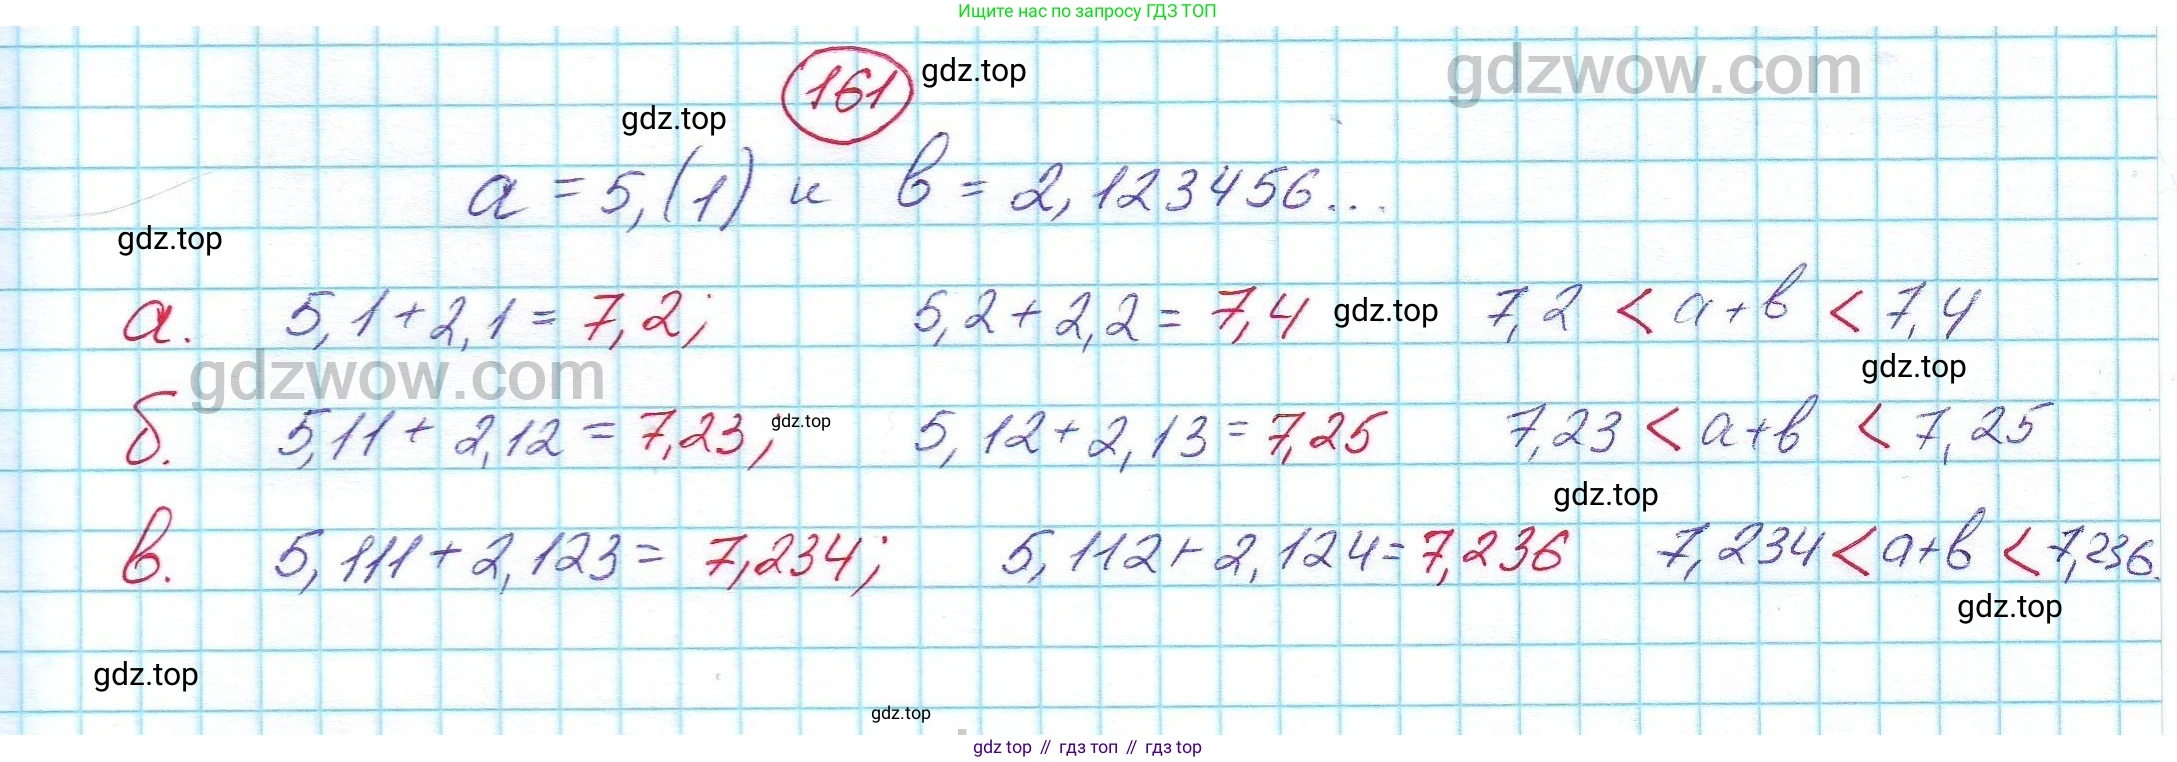 Ищите нас по запросу ГДЗ ТОП
gdzwow.com
161 gdz.top
gdz.top
a = 5,(1) и b = 2,123456...
gdz.top
а. 5,1+2,1=7,2; 5,2+2,2=7,4 gdz.top 7,2 < a+b < 7,4
gdz.top
gdzwow.com
б. 5,11+2,12=7,23; gdz.top 5,12+2,13=7,25 7,23 < a+b < 7,25
gdz.top
в. 5,111+2,123=7,234; 5,112+2,124=7,236 7,234 < a+b < 7,236.
gdz.top
gdz.top
gdz.top
gdz top // гдз топ // гдз top